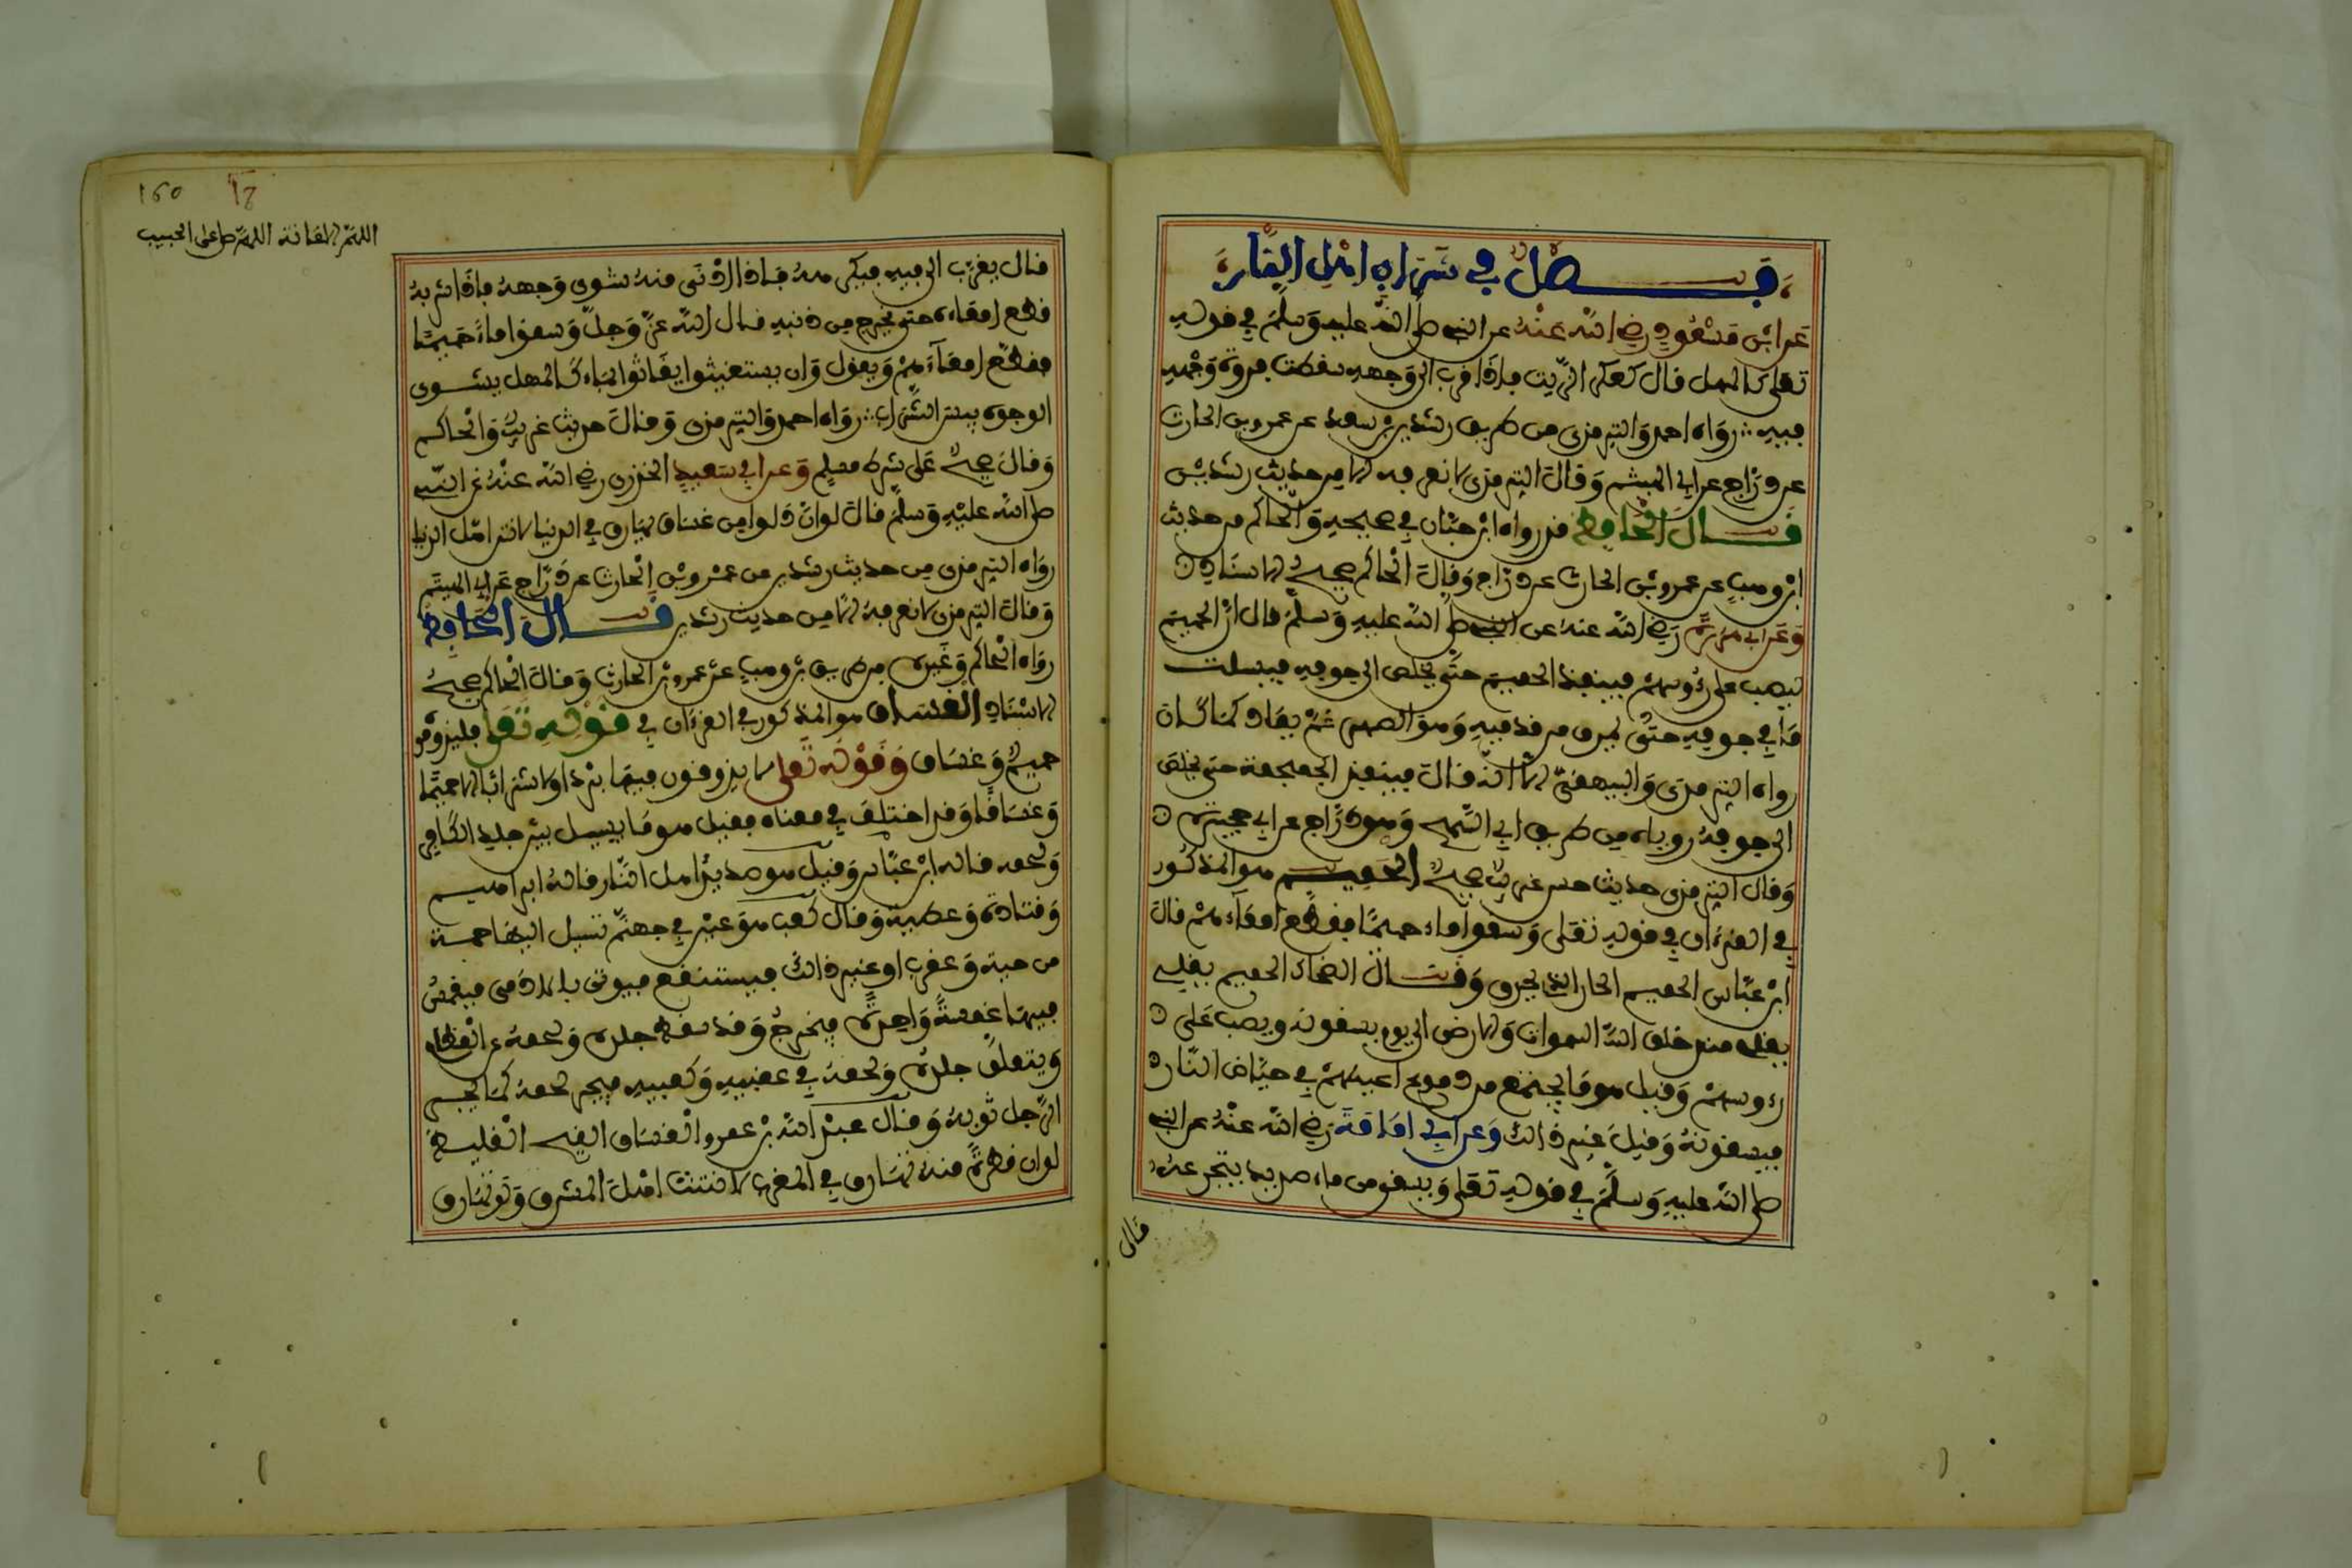 فصل في شراب اهل النار
عن ابن مسعود رضي الله عنه عن النبي صلى الله عليه وسلم في قوله
تعلى كالمهل قال كعكر الزيت فإذا قرب الى وجهه سقطت فروة وجهه
فيه رواه احمد والترمذي من طريق رشدين بن سعد عن عمرو بن الحارث
عن دراج عن ابي الهيثم وقال الترمذي لا نعرفه الا من حديث رشدين
قال الحافظ قد رواه ابن حبان في صحيحه والحاكم من حديث
ابن وهب عن عمرو بن الحارث عن دراج وقال الحاكم صحيح الاسناد
وعن ابي هريرة رضي الله عنه عن النبي صلى الله عليه وسلم قال ان الحميم
ليصب على رءوسهم فينفذ الحميم حتى يخلص الى جوفه فيسلت
ما في جوفه حتى يمرق من قدميه وهو الصهر ثم يعاد كما كان
رواه الترمذي والبيهقي الا انه قال فينفذ الجمجمة حتى يخلص
الى جوفه روياه من طريق ابي السمح وهو دراج عن ابي حجيرة
وقال الترمذي حديث حسن غريب صحيح الحميم هو المذكور
في القرءان في قوله تعلى وسقوا ماء حميما فقطع امعاءهم قال
ابن عباس الحميم الحار الذي يحرق وقال الضحاك الحميم يغلي
منذ خلق الله السموات والارض الى يوم يسقونه ويصب على
رءوسهم وقيل هو ما يجتمع من دموع اعينهم في حياض النار
فيسقونه وقيل غير ذالك وعن ابي امامة رضي الله عنه عن النبي
صلى الله عليه وسلم في قوله تعلى ويسقى من ماء صديد يتجرعه
قال
160
اللهم صل على الحبيب
قال يقرب الى فيه فيكرهه فإذا ادنى منه شوى وجهه فإذا شربه
قطع امعاءه حتى يخرج من دبره قال الله عز وجل وسقوا ماء حميما
فقطع امعاءهم ويقول وان يستغيثوا يغاثوا بماء كالمهل يشوي
الوجوه بيس الشراب رواه احمد والترمذي وقال حديث غريب والحاكم
وقال صحيح على شرط مسلم وعن ابي سعيد الخدري رضي الله عنه عن النبي
صلى الله عليه وسلم قال لو ان دلوا من غساق يهراق في الدنيا لانتن اهل الدنيا
رواه الترمذي من حديث رشدين عن عمرو بن الحارث عن دراج عن ابي الهيثم
وقال الترمذي لا نعرفه الا من حديث رشدين قال الحافظ
رواه الحاكم وغيره من طريق بن وهب عن عمرو بن الحارث وقال الحاكم صحيح
الاسناد الغساق هو المذكور في القرءان في قوله تعلى فليذوقوه
حميم وغساق وقوله تعلى لا يذوقون فيها بردا ولا شرابا الا حميما
وغساقا وقد اختلف في معناه فقيل هو ما يسيل بين جلد الكافر
ولحمه قاله ابن عباس وقيل هو صديد اهل النار قاله ابراهيم
وقتادة وعطية وقال كعب هو عين في جهنم تسيل اليها حمة
من حية وعقرب او غير ذالك فيستنقع فيوتى بالادمي فيغمس
فيها غمسة واحدة فيخرج وقد سقط جلده ولحمه عن العظام
ويتعلق جلده ولحمه في عقبيه وكعبيه فيجر لحمه كما يجر
الرجل ثوبه وقال عبد الله بن عمرو الغساق القيح الغليظ
لو ان قطرة منه تهراق في المغرب لانتنت اهل المشرق ولو تهراق